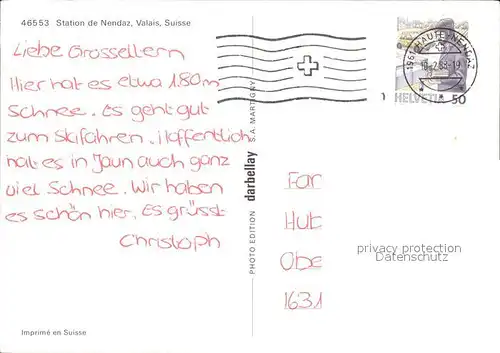 46553 Station de Nendaz, Valais, Suisse
Liebe Grosseltern
Hier hat es etwa 1.80m
Schnee. Es geht gut
zum Skifahren. Hoffentlich
hat es in Jaun auch ganz
viel Schnee. Wir haben
es schön hier. Es grüsst
Christoph
Imprimé en Suisse
PHOTO EDITION darbellay S.A. MARTIGNY
1961 HAUTE-NENDAZ
HELVETIA 50
Far
Hut
Obe
1631
privacy protection
Datenschutz